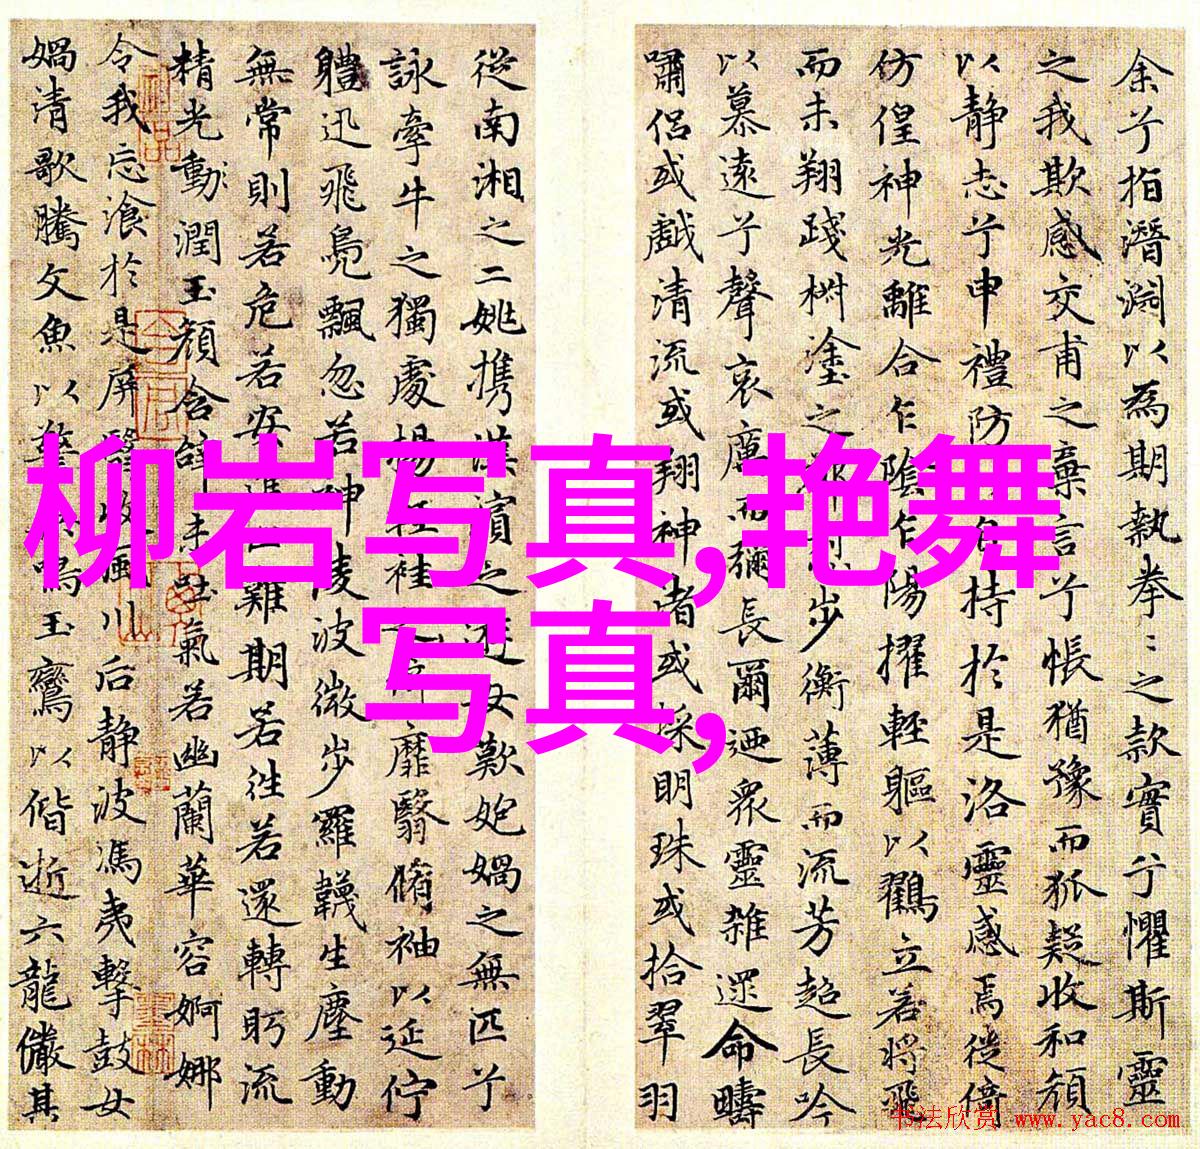 余兮指潛淵以為期執拳〻之款實兮懼斯靈
之我欺感交甫之棄言兮悵猶豫而狐疑收和顏
以静志兮申禮防以自持於是洛靈感焉徙倚
仿偟神光離合乍陰乍陽擢輕軀以鶴立若將飛
而未翔踐椒塗之步衡薄而流芳超長吟
以慕遠兮聲哀厲而彌長爾迺衆靈雜遝命疇
嘯侣或戲清流或翔神渚或採明珠或拾翠羽
從南湘之二姚攜漢濱之游女歎匏媧之無匹兮
詠牽牛之獨處揚輕袿之猗靡翳脩袖以延佇
體迅飛鳧飄忽若神淩波微步羅韈生塵動
無常則若危若安進止難期若往若還轉眄流
精光動潤玉顏含辭未吐氣若幽蘭華容婀娜
令我忘飡於是屏翳收風川后静波馮夷擊鼓女
媧清歌騰文魚以警乘鳴玉鸞以偕逝六龍儼其
柳岩写真,艳舞
写真,
书法欣赏 www.yac8.com